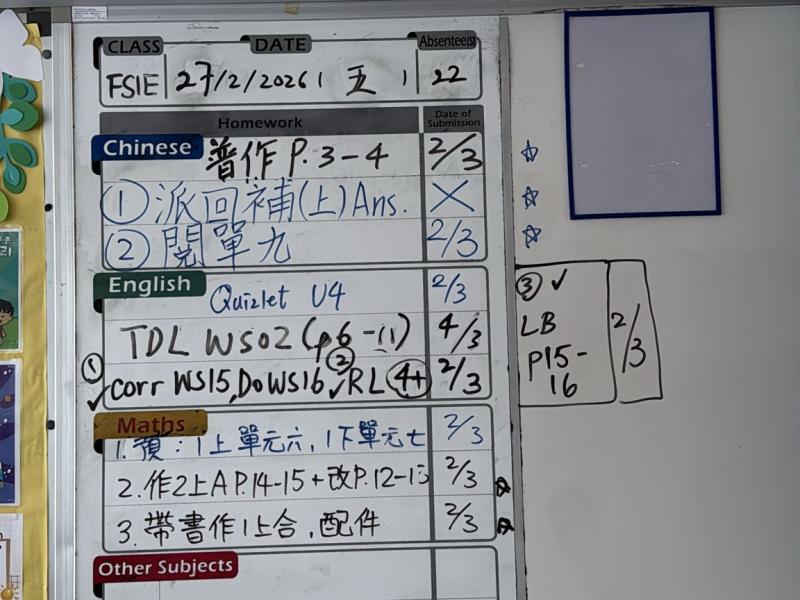 CLASS DATE Absentee(s)
F5IE 27/2/2026 ( 五 ) 22
Homework Date of Submission
Chinese 普作 P.3-4 2/3
① 派回補(上)Ans. ✕
② 閱單九 2/3
English Quizlet U4 2/3
TDL WS02 (p6-11) 4/3
① ✓ Corr WS15, Do WS16 ② ✓ RL 4+ 2/3
③ ✓ LB P15-16 2/3
Maths 1. 預:1上單元六, 1下單元七 2/3
2. 作2上A P.14-15 + 改P.12-13 2/3
3. 帶書作1上合, 配件 2/3
Other Subjects